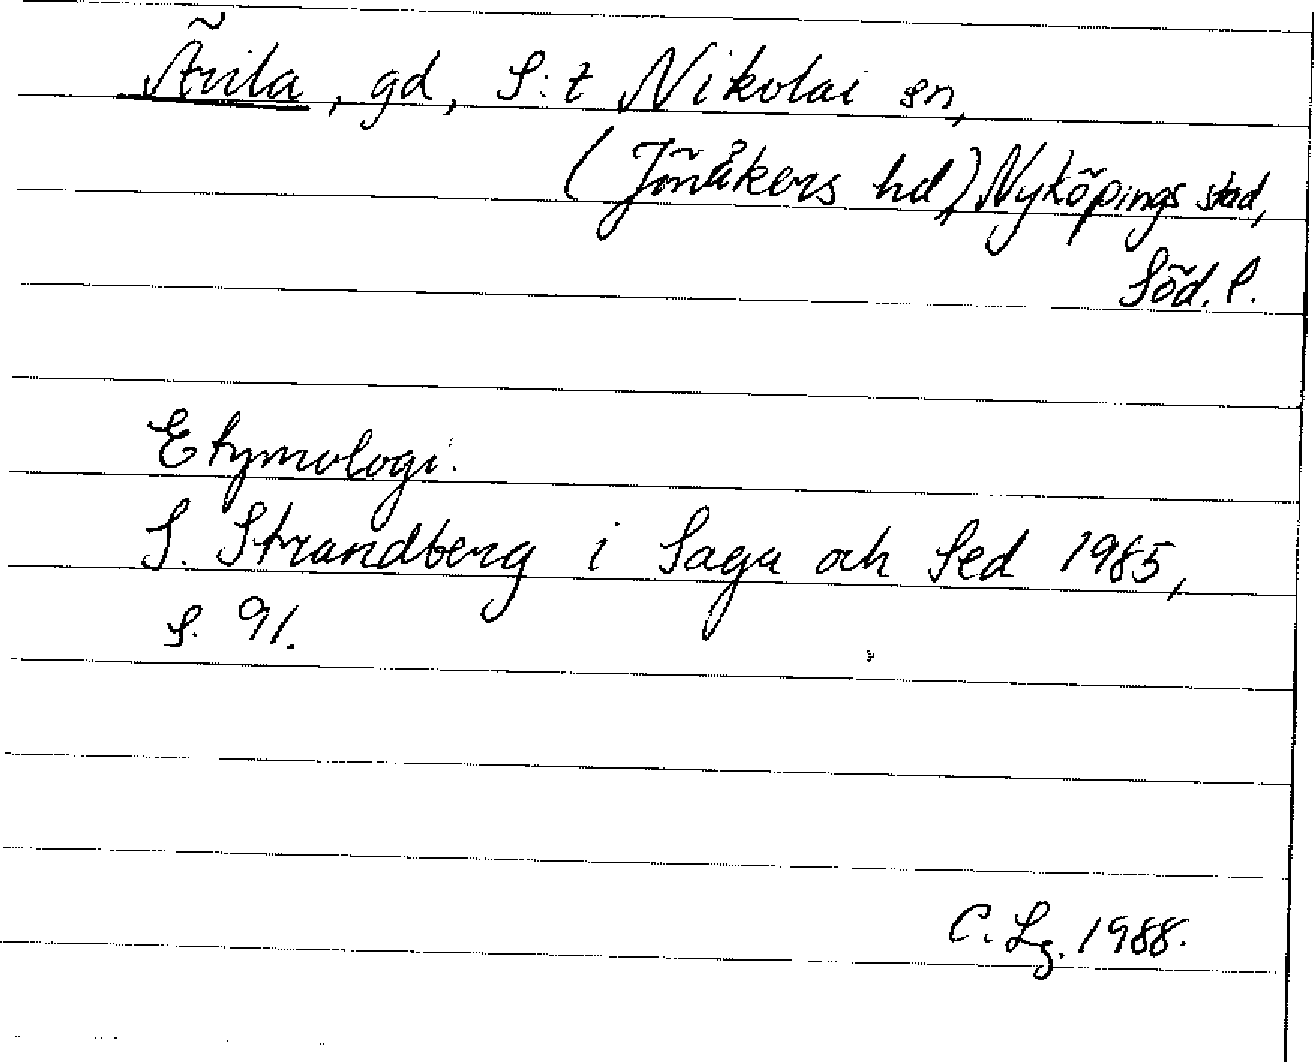 Ärila, gd, S:t Nikolai sn,
(Jönåkers hd,) Nyköpings stad,
Söd. l.
Etymologi:
S. Strandberg i Saga och Sed 1985,
s. 91.
C. Lg. 1988.